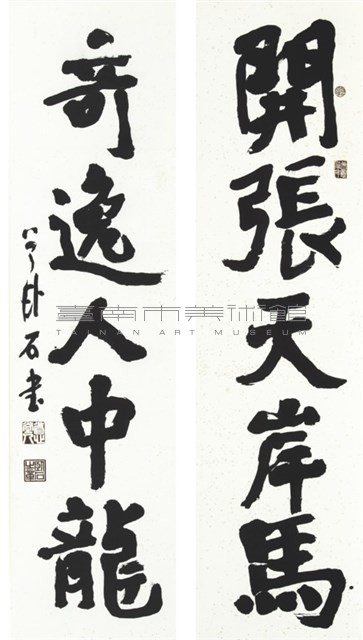 開張天岸馬
奇逸人中龍
石書
臺南市美術館
TAINAN ART MUSEUM